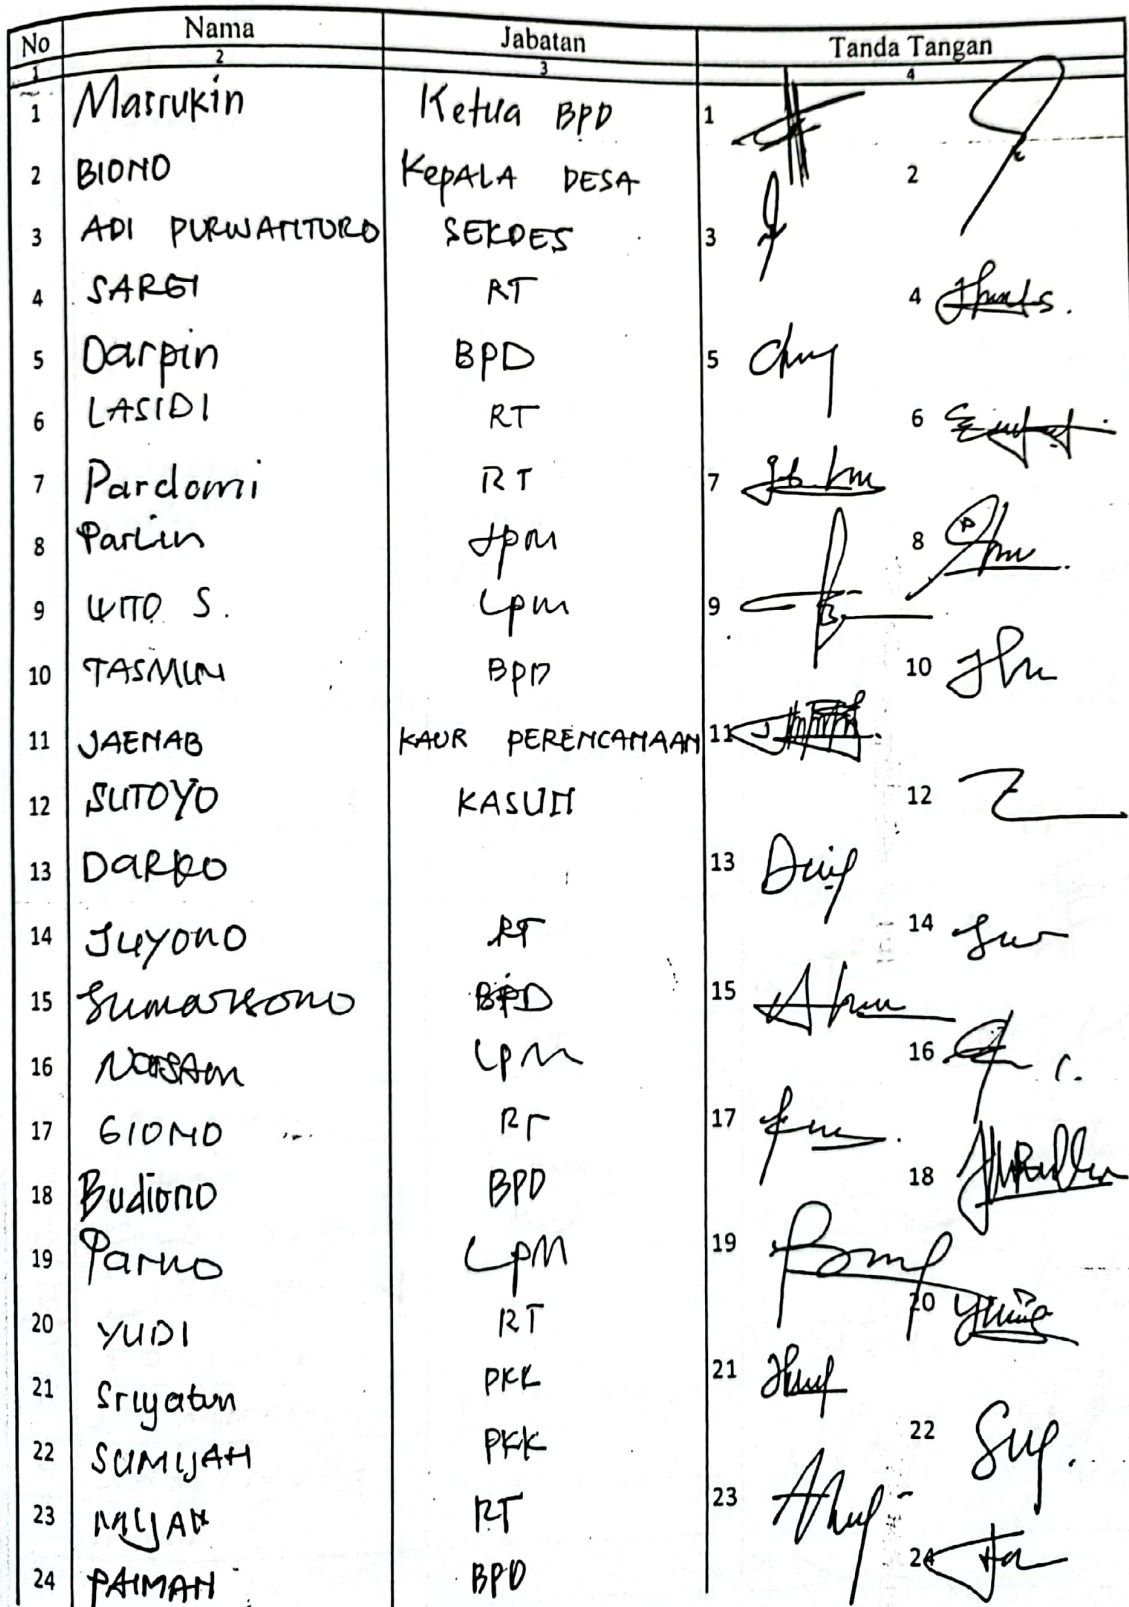 No Nama Jabatan Tanda Tangan
1 2 3 4
1 Masrukin Ketua BPD 1
2 BIONO KEPALA DESA 2
3 ADI PURWANTORO SEKDES 3
4 SARGI RT 4
5 Darpin BPD 5
6 LASIDI RT 6
7 Pardomi RT 7
8 Parlin Lpm 8
9 WITO S. Lpm 9
10 TASMUN BPD 10
11 JAENAB KAUR PERENCANAAN 11
12 SUTOYO KASUN 12
13 DARKO 13
14 Suyono RT 14
15 Sumarsono BPD 15
16 LPM 16
17 GIONO RT 17
18 Budiono BPD 18
19 Parno LPM 19
20 YUDI RT 20
21 Sriyatun PKK 21
22 SUMIJAH PKK 22
23 MIJAN RT 23
24 PAIMAN BPD 24